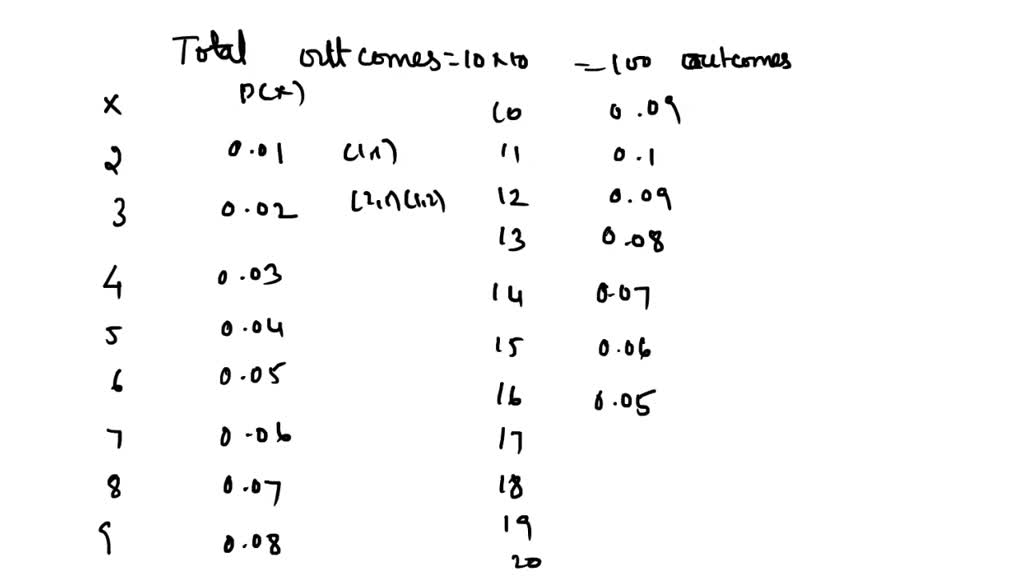 Total outcomes = 10 x 10 = 100 outcomes
x P(x)
2 0.01 (1,1)
3 0.02 (2,1) (1,2)
4 0.03
5 0.04
6 0.05
7 0.06
8 0.07
9 0.08
10 0.09
11 0.1
12 0.09
13 0.08
14 0.07
15 0.06
16 0.05
17
18
19
20